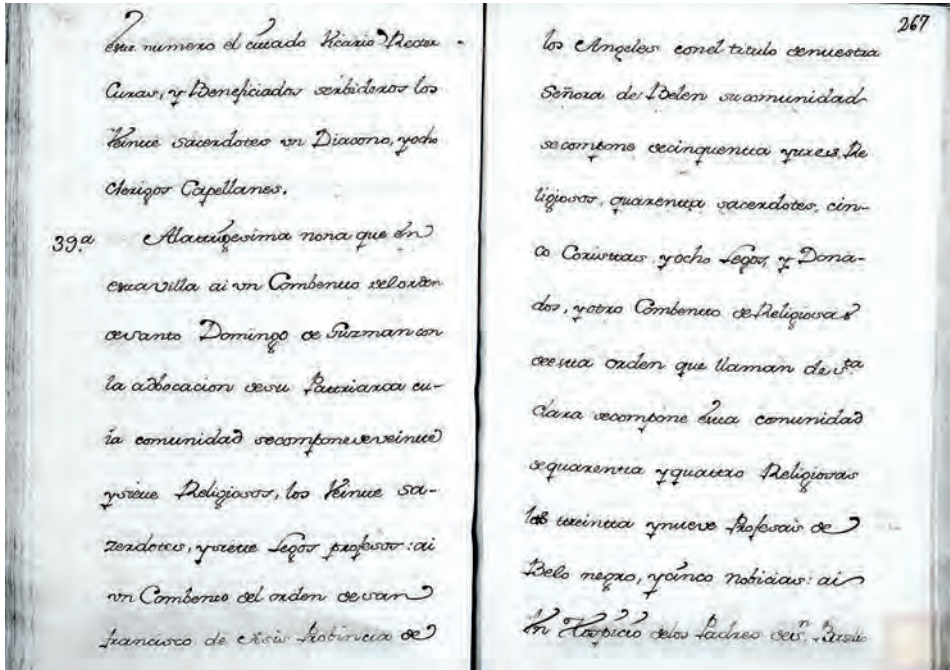 este numero el citado Vicario Rector
Curas, y Beneficiados serbideros los
Veinte sacerdotes un Diacono, y ocho
clerigos Capellanes.
39.ª A la trigesima nona que en
esta villa ai un Combento del orden
de santo Domingo de Guzman con
la adbocacion de su Patriarca cu-
ia comunidad se compone de veinte
y siete Religiosos, los Veinte Sa-
zerdotes, y siete Legos profesos: ai
un Combento del orden de san
francisco de Asis Probincia de
267
los Angeles con el titulo de nuestra
Señora de Belen su comunidad
se compone de cinquenta y tres Re
ligiosos, quarenta sacerdotes, cin-
co Coristas, y ocho Legos, y Dona-
dos, y otro Combento de Religiosas
de esta orden que llaman de s.ta
Clara se compone esta comunidad
de quarenta y quatro Religiosas
las treinta y nueve Profesas de
Belo negro, y cinco nobicias: ai
Un Hospicio de los Padres de s.n Basilio